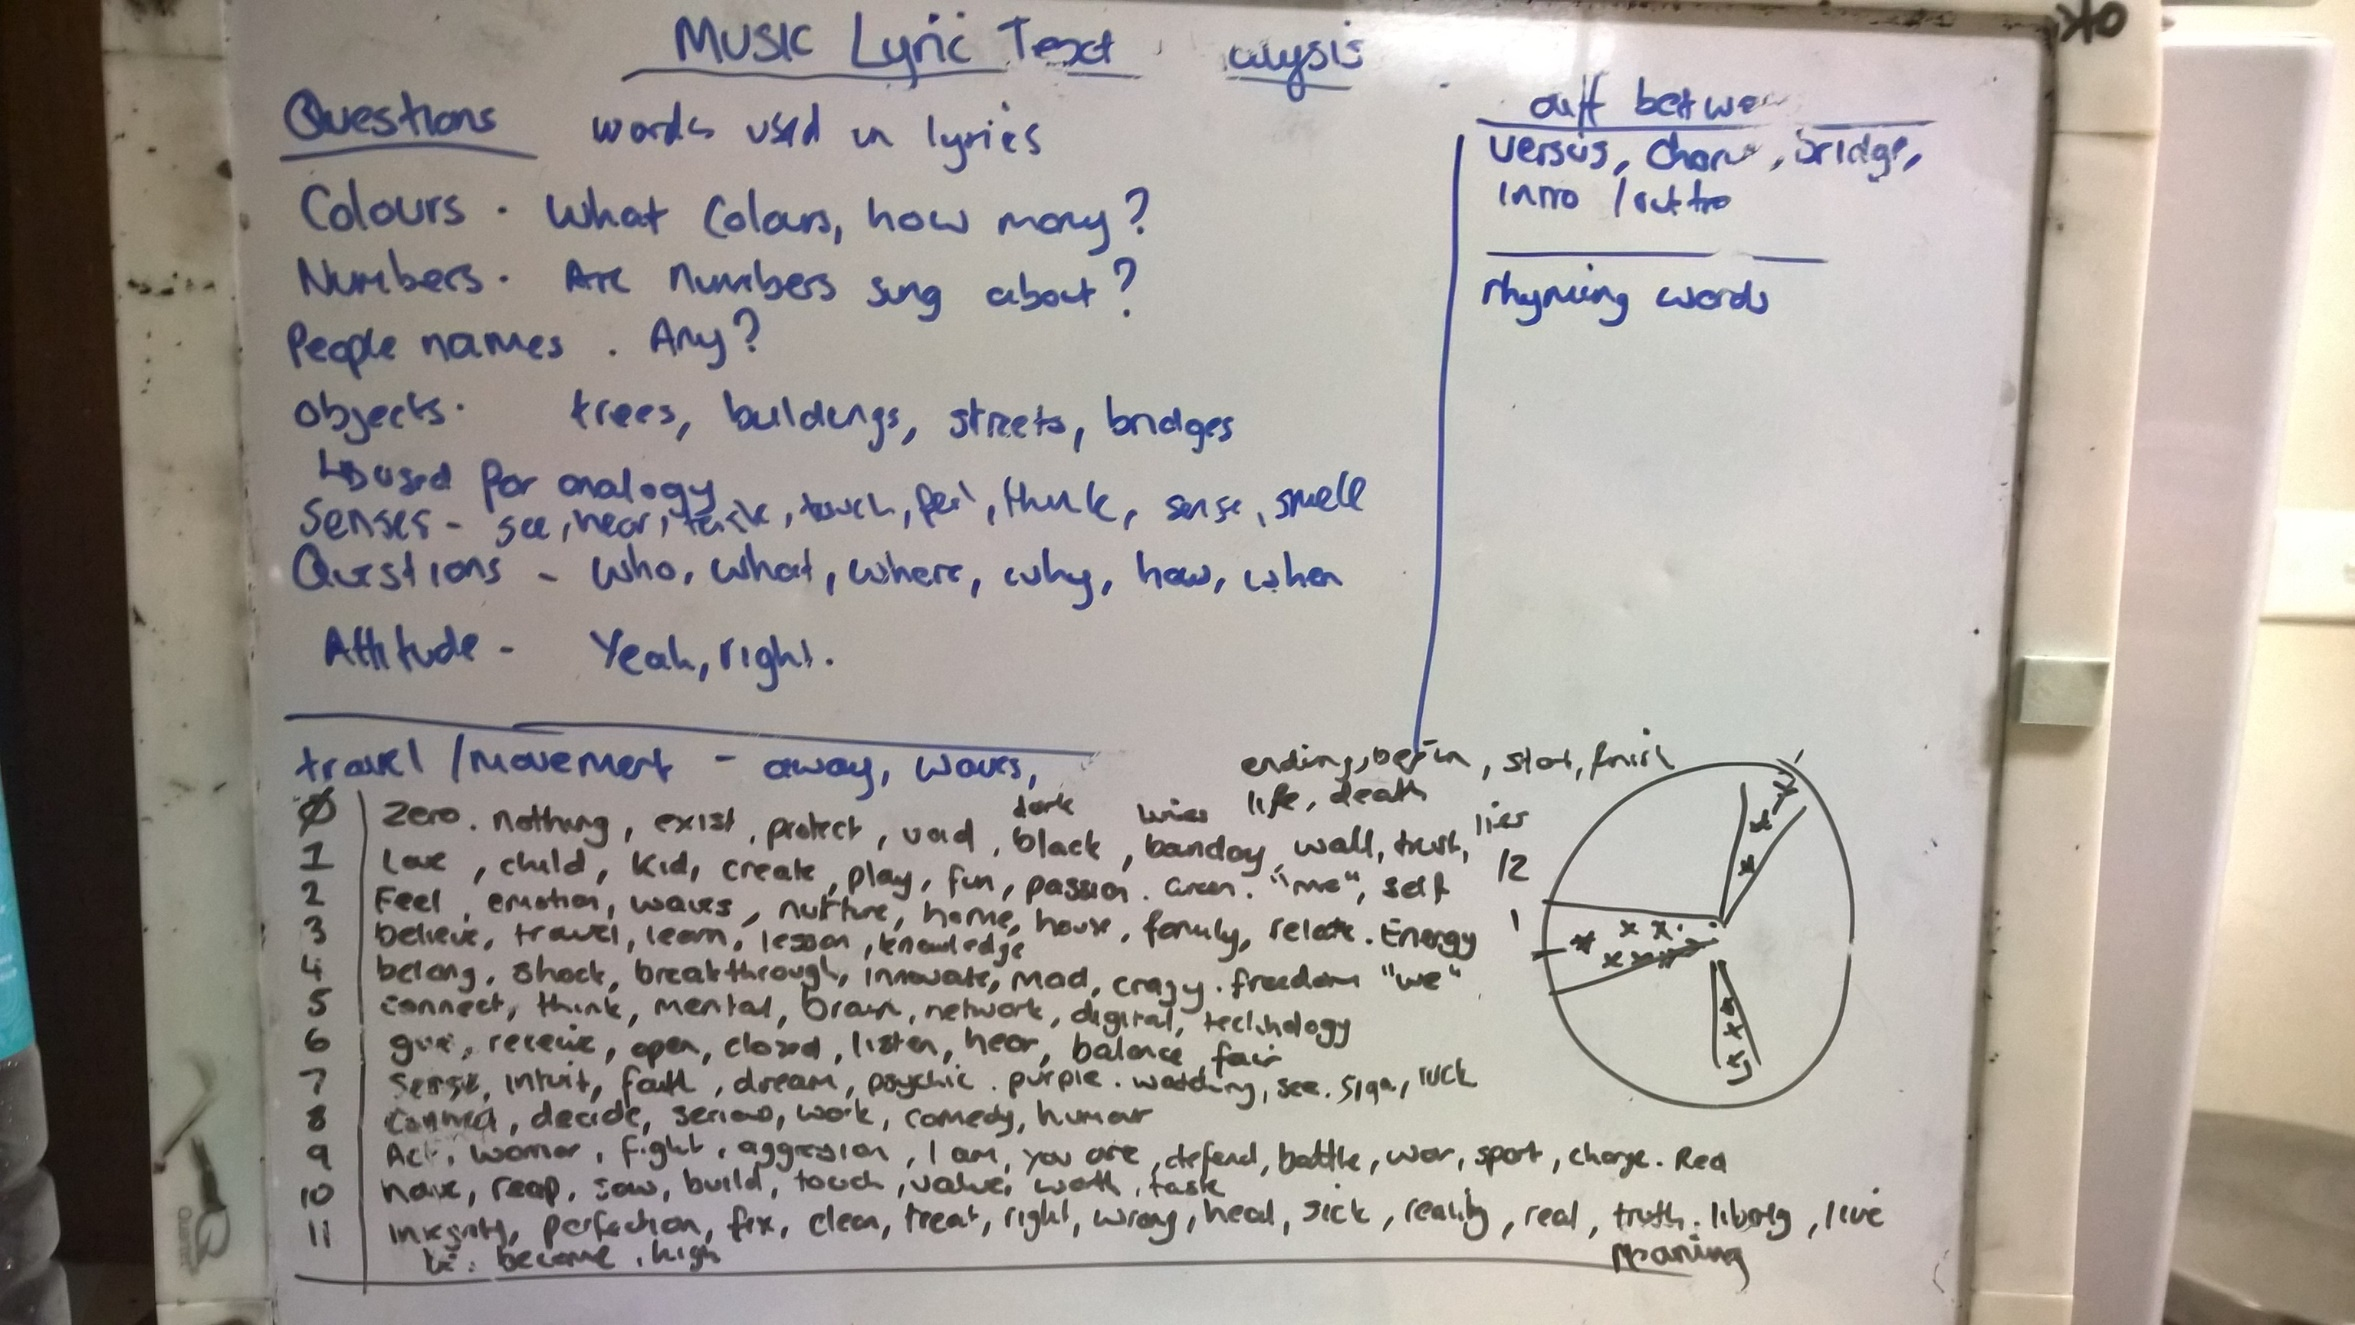 Music Lyric Text alysis
Questions words used in lyrics
Colours. What Colours, how many?
Numbers. Are numbers sung about?
People names. Any?
Objects. trees, buildings, streets, bridges
used for analogy
Senses - see, hear, taste, touch, feel, think, sense, smell
Questions - who, what, where, why, how, when
Attitude - Yeah, right.
diff betwe
versus, chorus, bridge,
intro / outtro
rhyming words
travel / movement - away, waves,
ending, begin, start, finish
life, death
dark
lies
Ø zero. nothing, exist, protect, void, black, wall, trust,
1 Love, child, kid, create, play, fun, passion. Green. "me", self
2 Feel, emotion, waves, nurture, home, house, family, relate. Energy
3 believe, travel, learn, lesson, knowledge
4 belong, shock, breakthrough, innovate, mad, crazy. freedom "we"
5 connect, think, mental, brain, network, digital, technology
6 give, receive, open, closed, listen, hear, balance, fair
7 Sense, intuit, faith, dream, psychic. purple. watching, see. Sign, luck
8 decide, serious, work, comedy, humour
9 Act, fight, aggression, I am, you are, defend, battle, war, sport, charge. Red
10 have, reap, sow, build, touch, value, worth, task
11 Integrity, perfection, fix, clean, treat, right, wrong, heal, sick, reality, real, truth. live
become, high
meaning
12
1
OK
Quartet